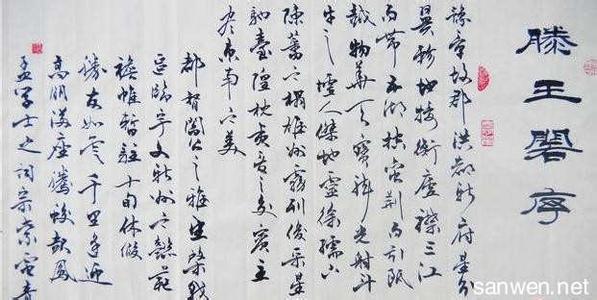 滕王閣序
豫章故郡洪都新府星分
翼軫地接衡廬襟三江
而帶五湖控蠻荊而引甌
越物華天寶龍光射斗
牛之墟人傑地靈徐孺下
陳蕃之榻雄州霧列俊采星
馳臺隍枕夷夏之交賓主
尽東南之美
都督閻公之雅望棨戟
遥臨宇文新州之懿範
襜帷暫駐十旬休假
勝友如雲千里逢迎
高朋滿座騰蛟起鳳
孟學士之詞宗紫電青
sanwen.net